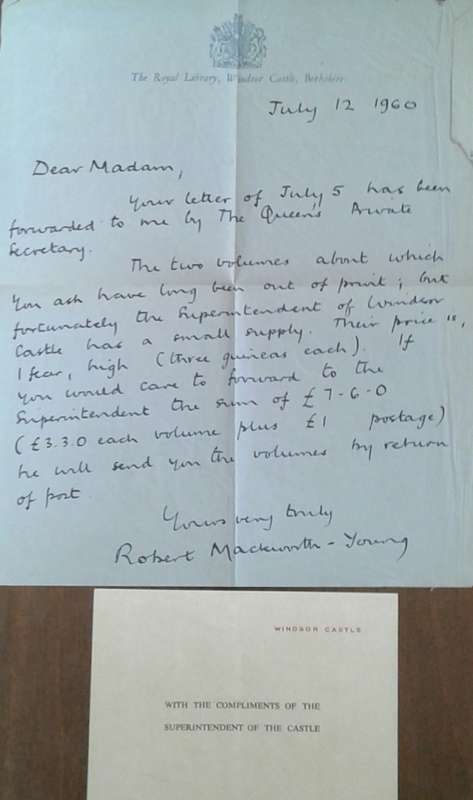 The Royal Library, Windsor Castle, Berkshire.
July 12 1960
Dear Madam,
Your letter of July 5 has been
forwarded to me by The Queen's Private
Secretary.
The two volumes about which
you ask have long been out of print; but
fortunately the Superintendent of Windsor
Castle has a small supply. Their price is,
I fear, high (three guineas each). If
you would care to forward to the
Superintendent the sum of £7-6-0
(£3.3.0 each volume plus £1 postage)
he will send you the volumes by return
of post.
Yours very truly
Robert Mackworth-Young
WINDSOR CASTLE
WITH THE COMPLIMENTS OF THE
SUPERINTENDENT OF THE CASTLE